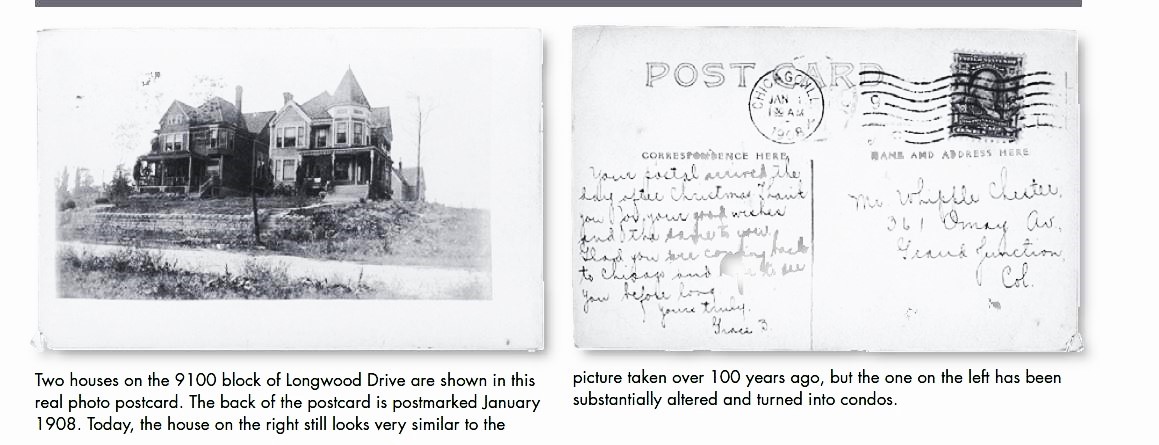 POST CARD
CHICAGO, ILL.
JAN 1
1908
CORRESPONDENCE HERE
NAME AND ADDRESS HERE
Your postal arrived the
day after Christmas. Thank
you for your good wishes
and the same to you.
Glad you are coming back
to Chicago and to see
you before long
Yours truly.
Grace B.
Mr Whipple Chester,
361 Av.
Grand Junction,
Col.
Two houses on the 9100 block of Longwood Drive are shown in this
real photo postcard. The back of the postcard is postmarked January
1908. Today, the house on the right still looks very similar to the
picture taken over 100 years ago, but the one on the left has been
substantially altered and turned into condos.